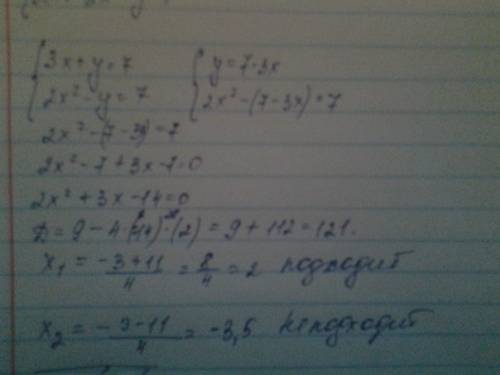 3x+y=7 y=7-3x
2x²-y=7 2x²-(7-3x)=7
2x²-(7-3x)=7
2x²-7+3x-7=0
2x²+3x-14=0
D=9-4·(-14)·(2)=9+112=121.
x₁=(-3+11)/4=8/4=2 подходит
x₂=(-3-11)/4=-3,5 не подходит